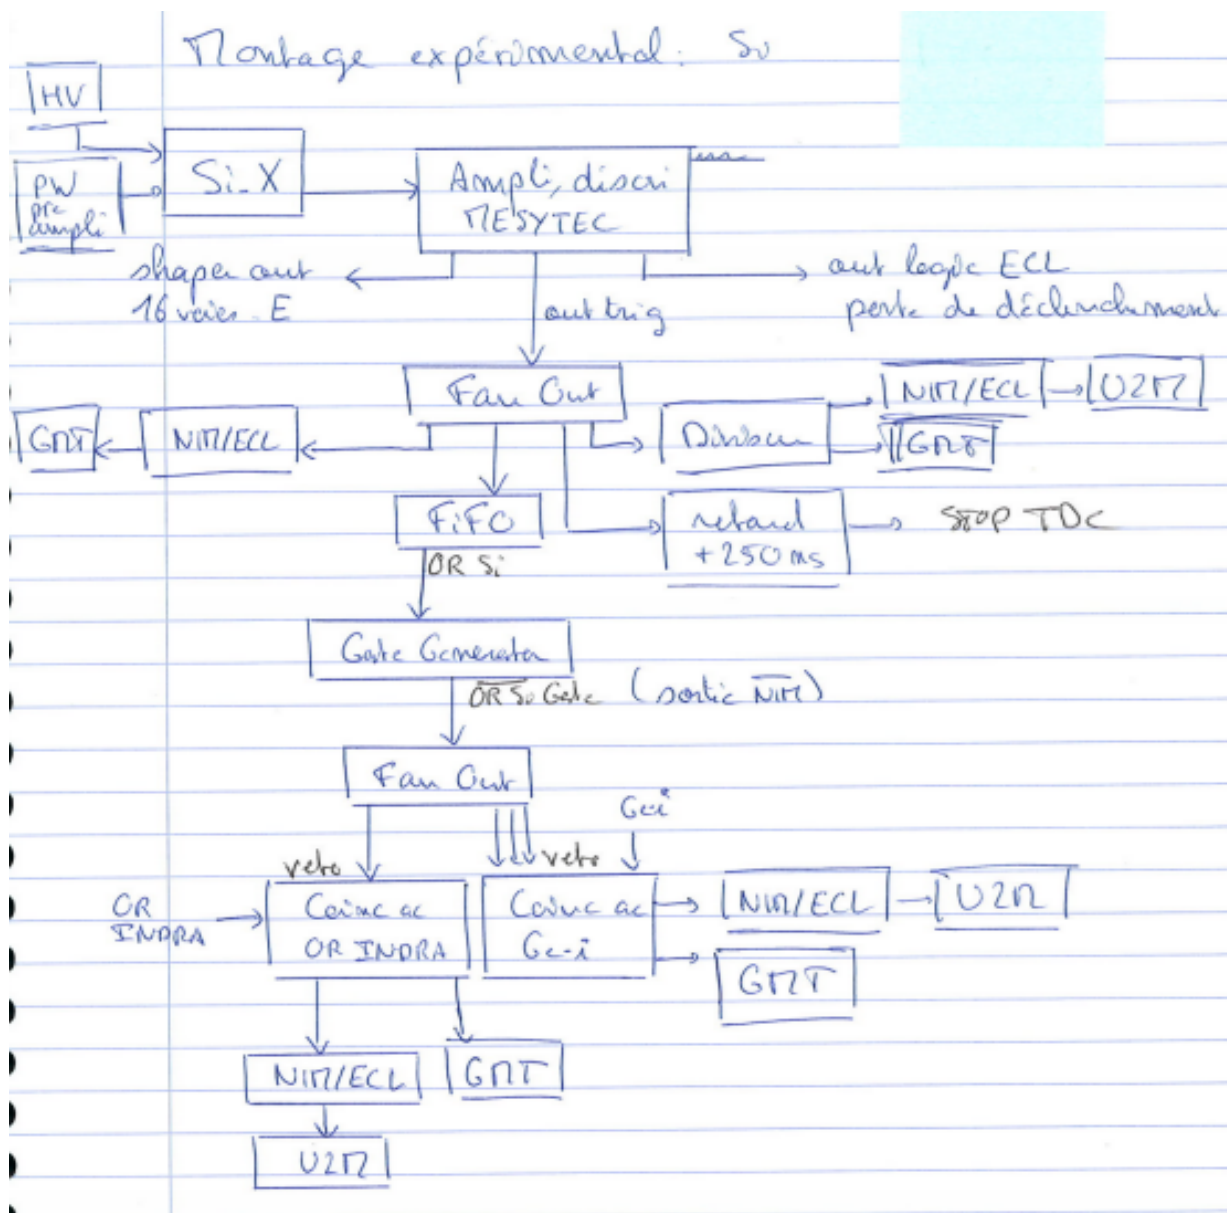 Montage expérimental : Si
HV
PW
pre
ampli
Si-X
Ampli, discri
MESYTEC
shaper out
16 voies - E
out trig
out logic ECL
porte de déclenchement
Fan Out
GMT
NIM/ECL
Diviseur
NIM/ECL
U2M
GMT
FiFO
retard
+250 ns
STOP TDC
OR Si
Gate Generator
OR Si Gate (sortie NIM)
Fan Out
Ge-i
veto
veto
OR
INDRA
Coinc ac
OR INDRA
Coinc ac
Ge-i
NIM/ECL
U2M
GMT
NIM/ECL
GMT
U2M